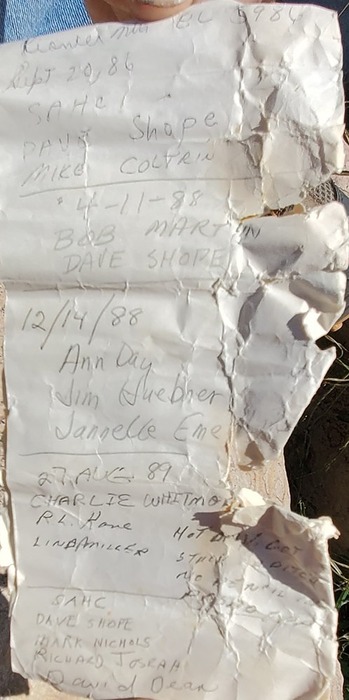 1986
Sept 20, 86
SAHC
DAVE Shope
MIKE COLTRIN
4-11-88
BOB MARTIN
DAVE SHOPE
12/14/88
Ann Day
Jim Huebner
Jannelle Eme
27 AUG 89
CHARLIE WHITMO
P.L. Kane
LINDA MILLER
HOT
SAHC
DAVE SHOPE
MARK NICHOLS
RICHARD JOSEPH
David Dean